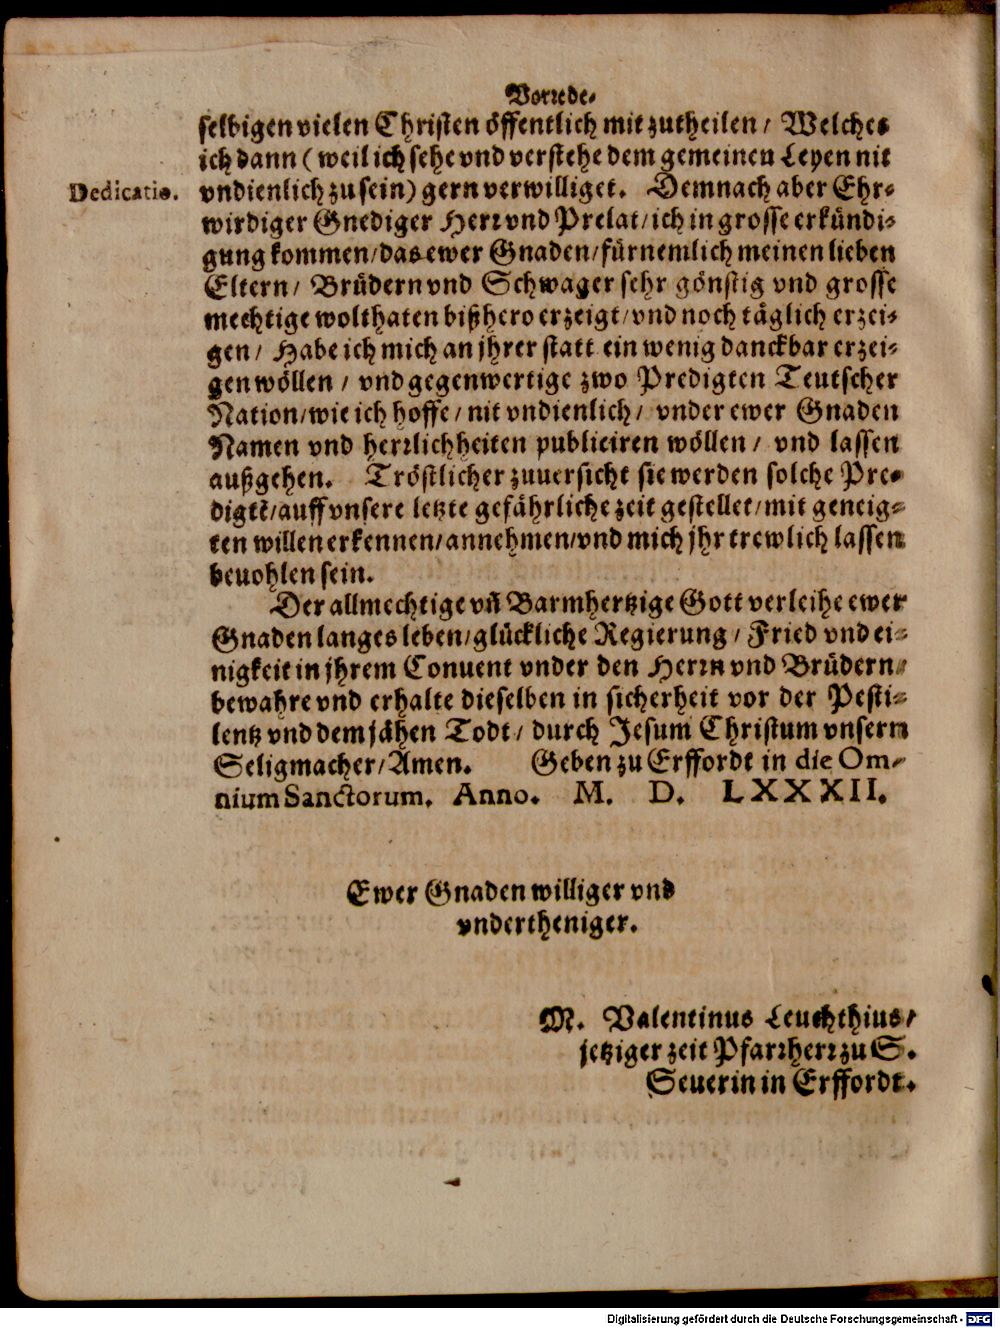 Vorrede.
selbigen vielen Christen öffentlich mit zutheilen / Welches
ich dann ( weil ich sehe vnd verstehe dem gemeinen Leyen nit
Dedicatio.
vndienlich zu sein) gern verwilliget. Demnach aber Ehr-
wirdiger Gnediger Herr vnd Prelat / ich in grosse erkündi-
gung kommen / das ewer Gnaden / fürnemlich meinen lieben
Eltern / Brüdern vnd Schwager sehr gönstig vnd grosse
mechtige wolthaten bißhero erzeigt / vnd noch täglich erzei-
gen / Habe ich mich an jhrer statt ein wenig danckbar erzei-
gen wöllen / vnd gegenwertige zwo Predigten Teutscher
Nation / wie ich hoffe / nit vndienlich / vnder ewer Gnaden
Namen vnd herrlichheiten publiciren wöllen / vnd lassen
außgehen. Tröstlicher zuuersicht sie werden solche Pre-
digtē / auff vnsere letzte gefährliche zeit gestellet / mit geneig-
ten willen erkennen / annehmen / vnd mich jhr trewlich lassen
beuohlen sein.
Der allmechtige vñ Barmhertzige Gott verleihe ewer
Gnaden langes leben / glückliche Regierung / Fried vnd ei-
nigkeit in jhrem Conuent vnder den Herrn vnd Brüdern /
bewahre vnd erhalte dieselben in sicherheit vor der Pesti-
lentz vnd dem jähen Todt / durch Jesum Christum vnsern
Seligmacher / Amen. Geben zu Erffordt in die Om-
nium Sanctorum. Anno. M. D. LXXXII.
Ewer Gnaden williger vnd
vndertheniger.
M. Valentinus Leuchthius /
jetziger zeit Pfarrherr zu S.
Seuerin in Erffordt.
Digitalisierung gefördert durch die Deutsche Forschungsgemeinschaft - DFG